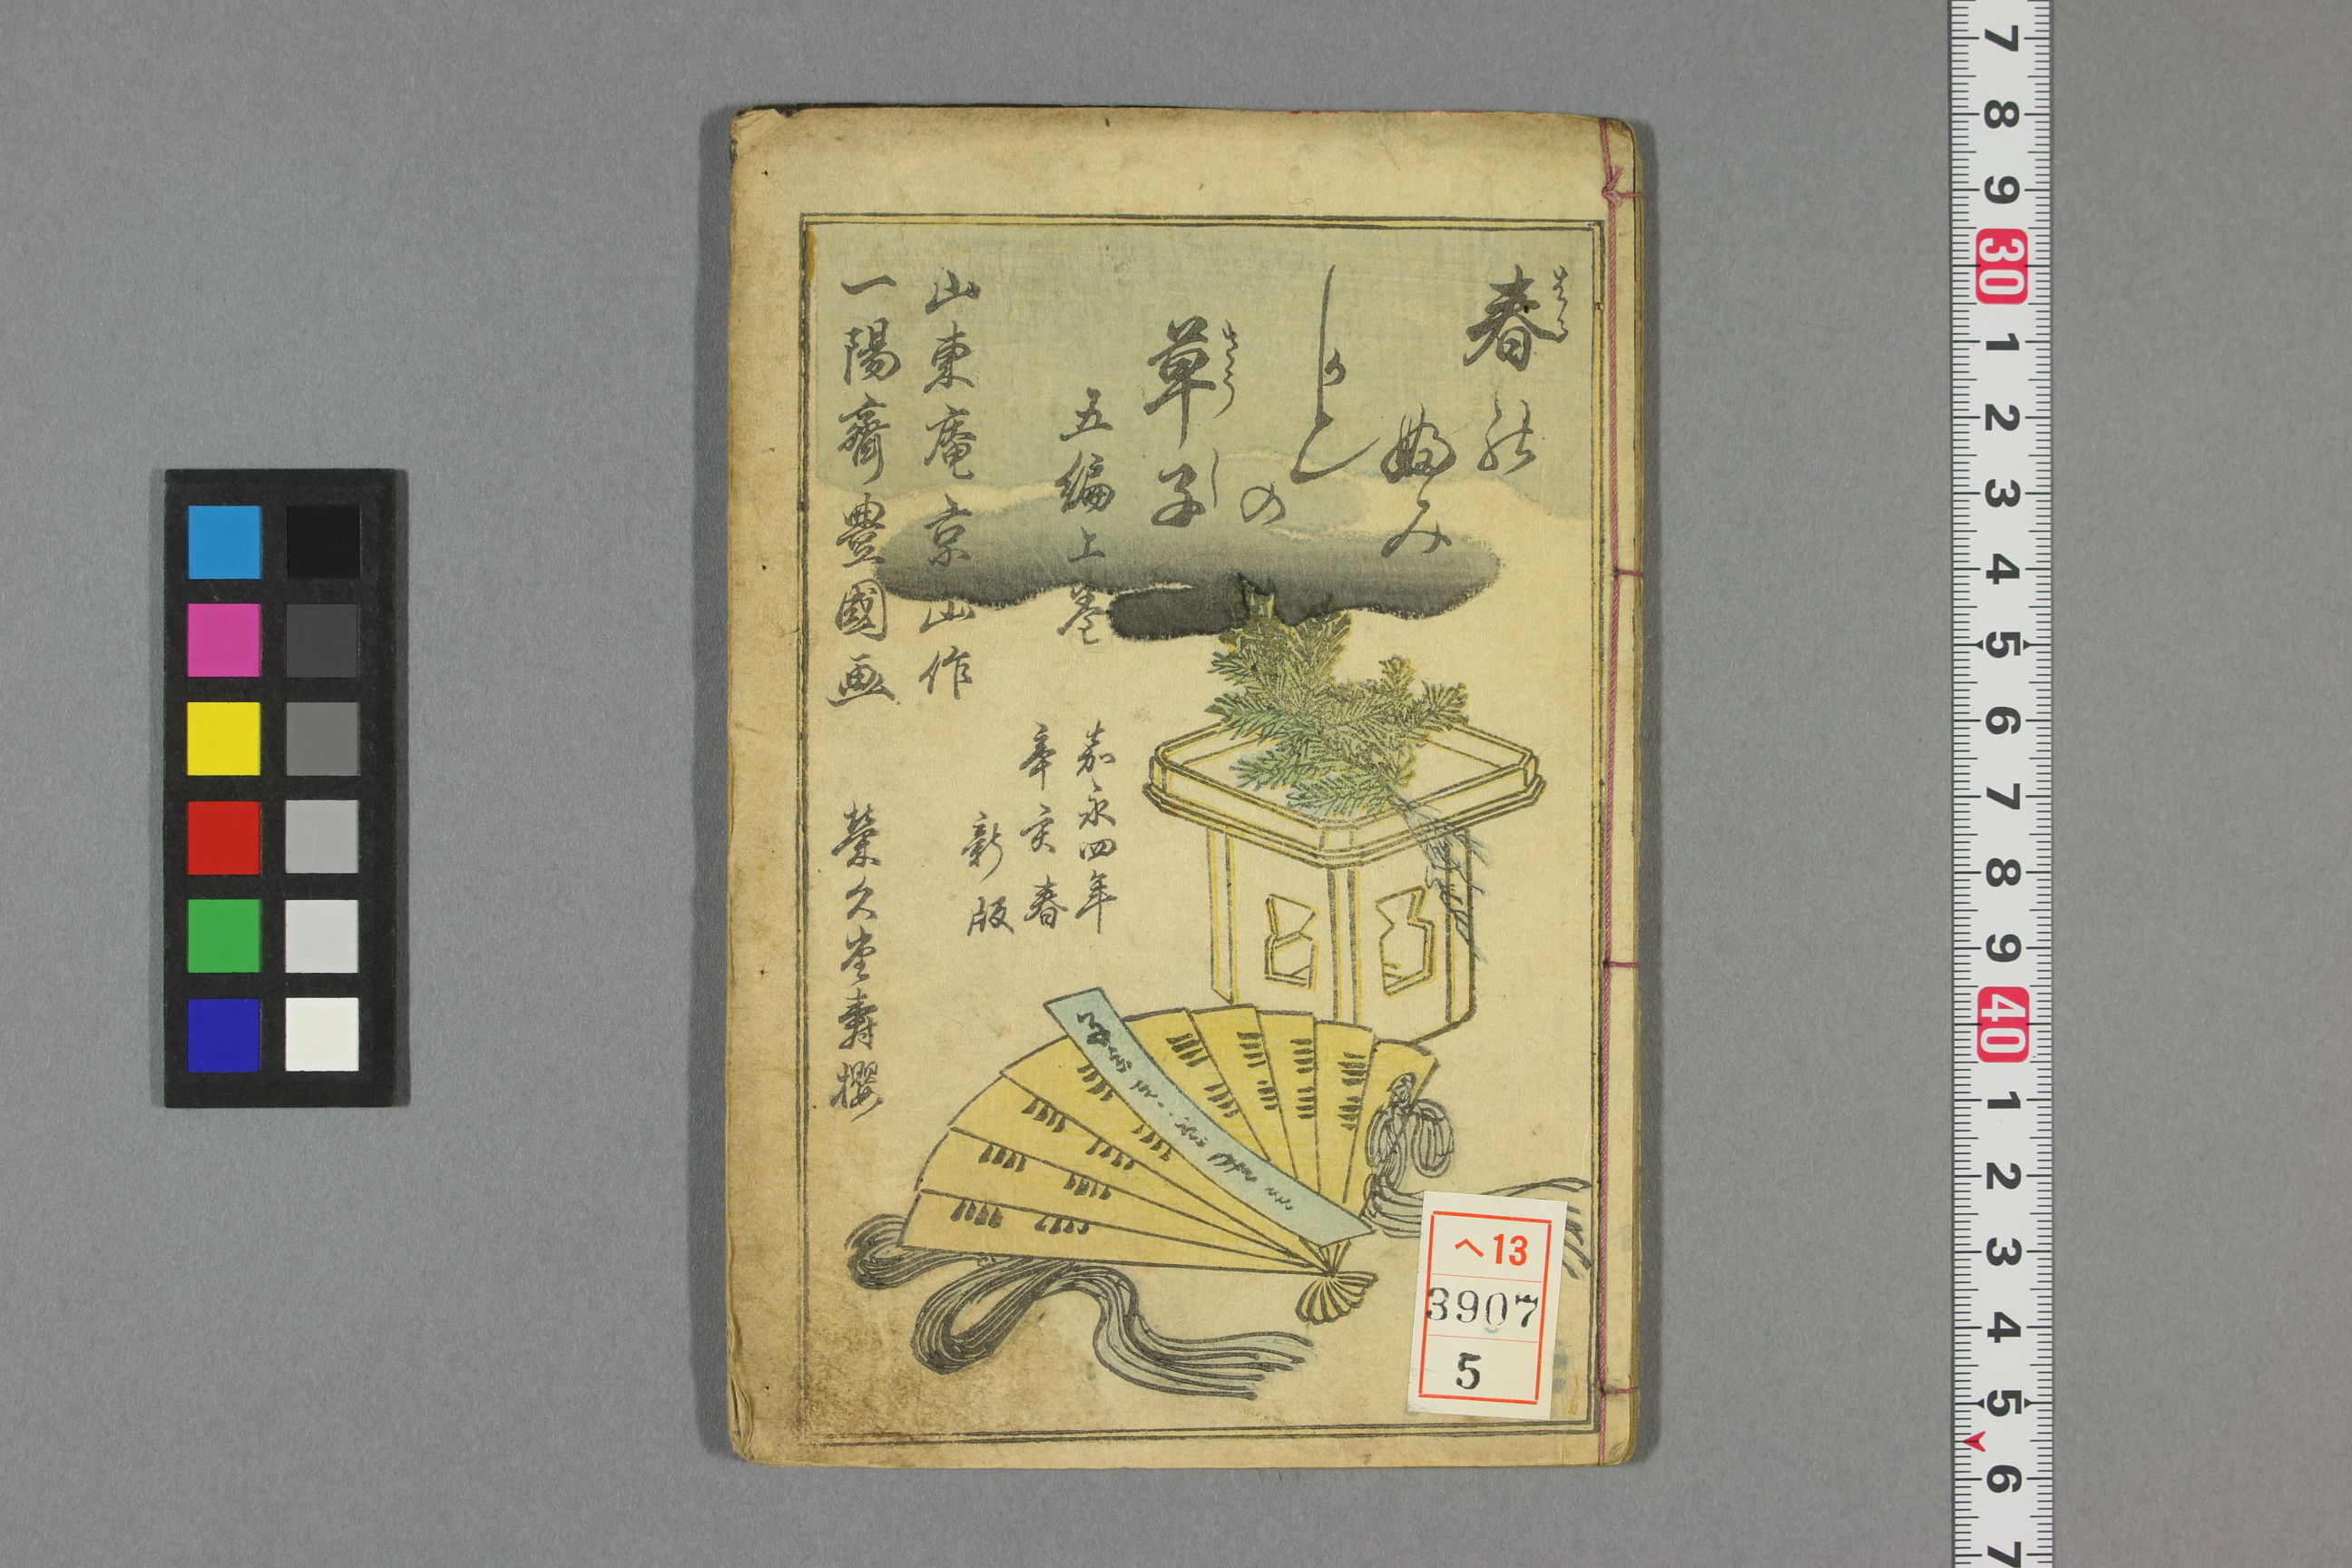 春能
はる
婦み
かしこ
の
草子
さうし
五編上巻
山東庵京山作
一陽齋豊國画
嘉永四年
辛亥春
新版
榮久堂壽櫻
ヘ13
3907
5
7
8
9
30
1
2
3
4
5
6
7
8
9
40
1
2
3
4
5
6
7